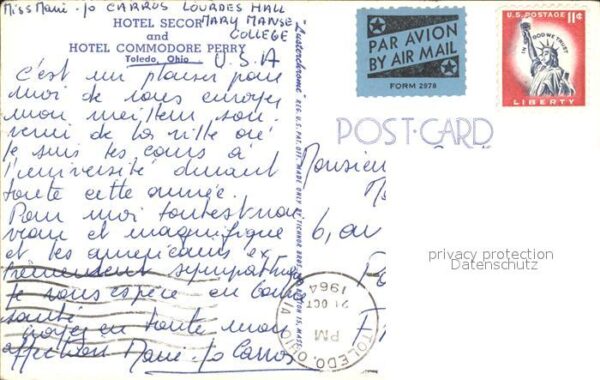 Miss Marie-jo CARROS LOURDES HALL
MARY MANSE
COLLEGE
HOTEL SECOR
and
HOTEL COMMODORE PERRY
Toledo, Ohio
U.S.A
C'est un plaisir pour
moi de vous envoyer
mon meilleur sou-
venir de la ville où
je suis les cours à
l'université durant
toute cette année.
Pour moi tout est nou-
veau et magnifique
et les américains ex-
trêmement sympathiques
Je vous espère en bonne
santé
Croyez en toute mon
affection Marie-jo Carros
"Lusterchrome" REG. U.S. PAT. OFF. MADE ONLY BY TICHNOR BROS., INC., BOSTON 15, MASS.
PAR AVION
BY AIR MAIL
FORM 2978
U.S. POSTAGE 11¢
IN GOD WE TRUST
LIBERTY
POST CARD
Monsieur
6, av
privacy protection
Datenschutz
TOLEDO, OHIO
PM
21 OCT
1964